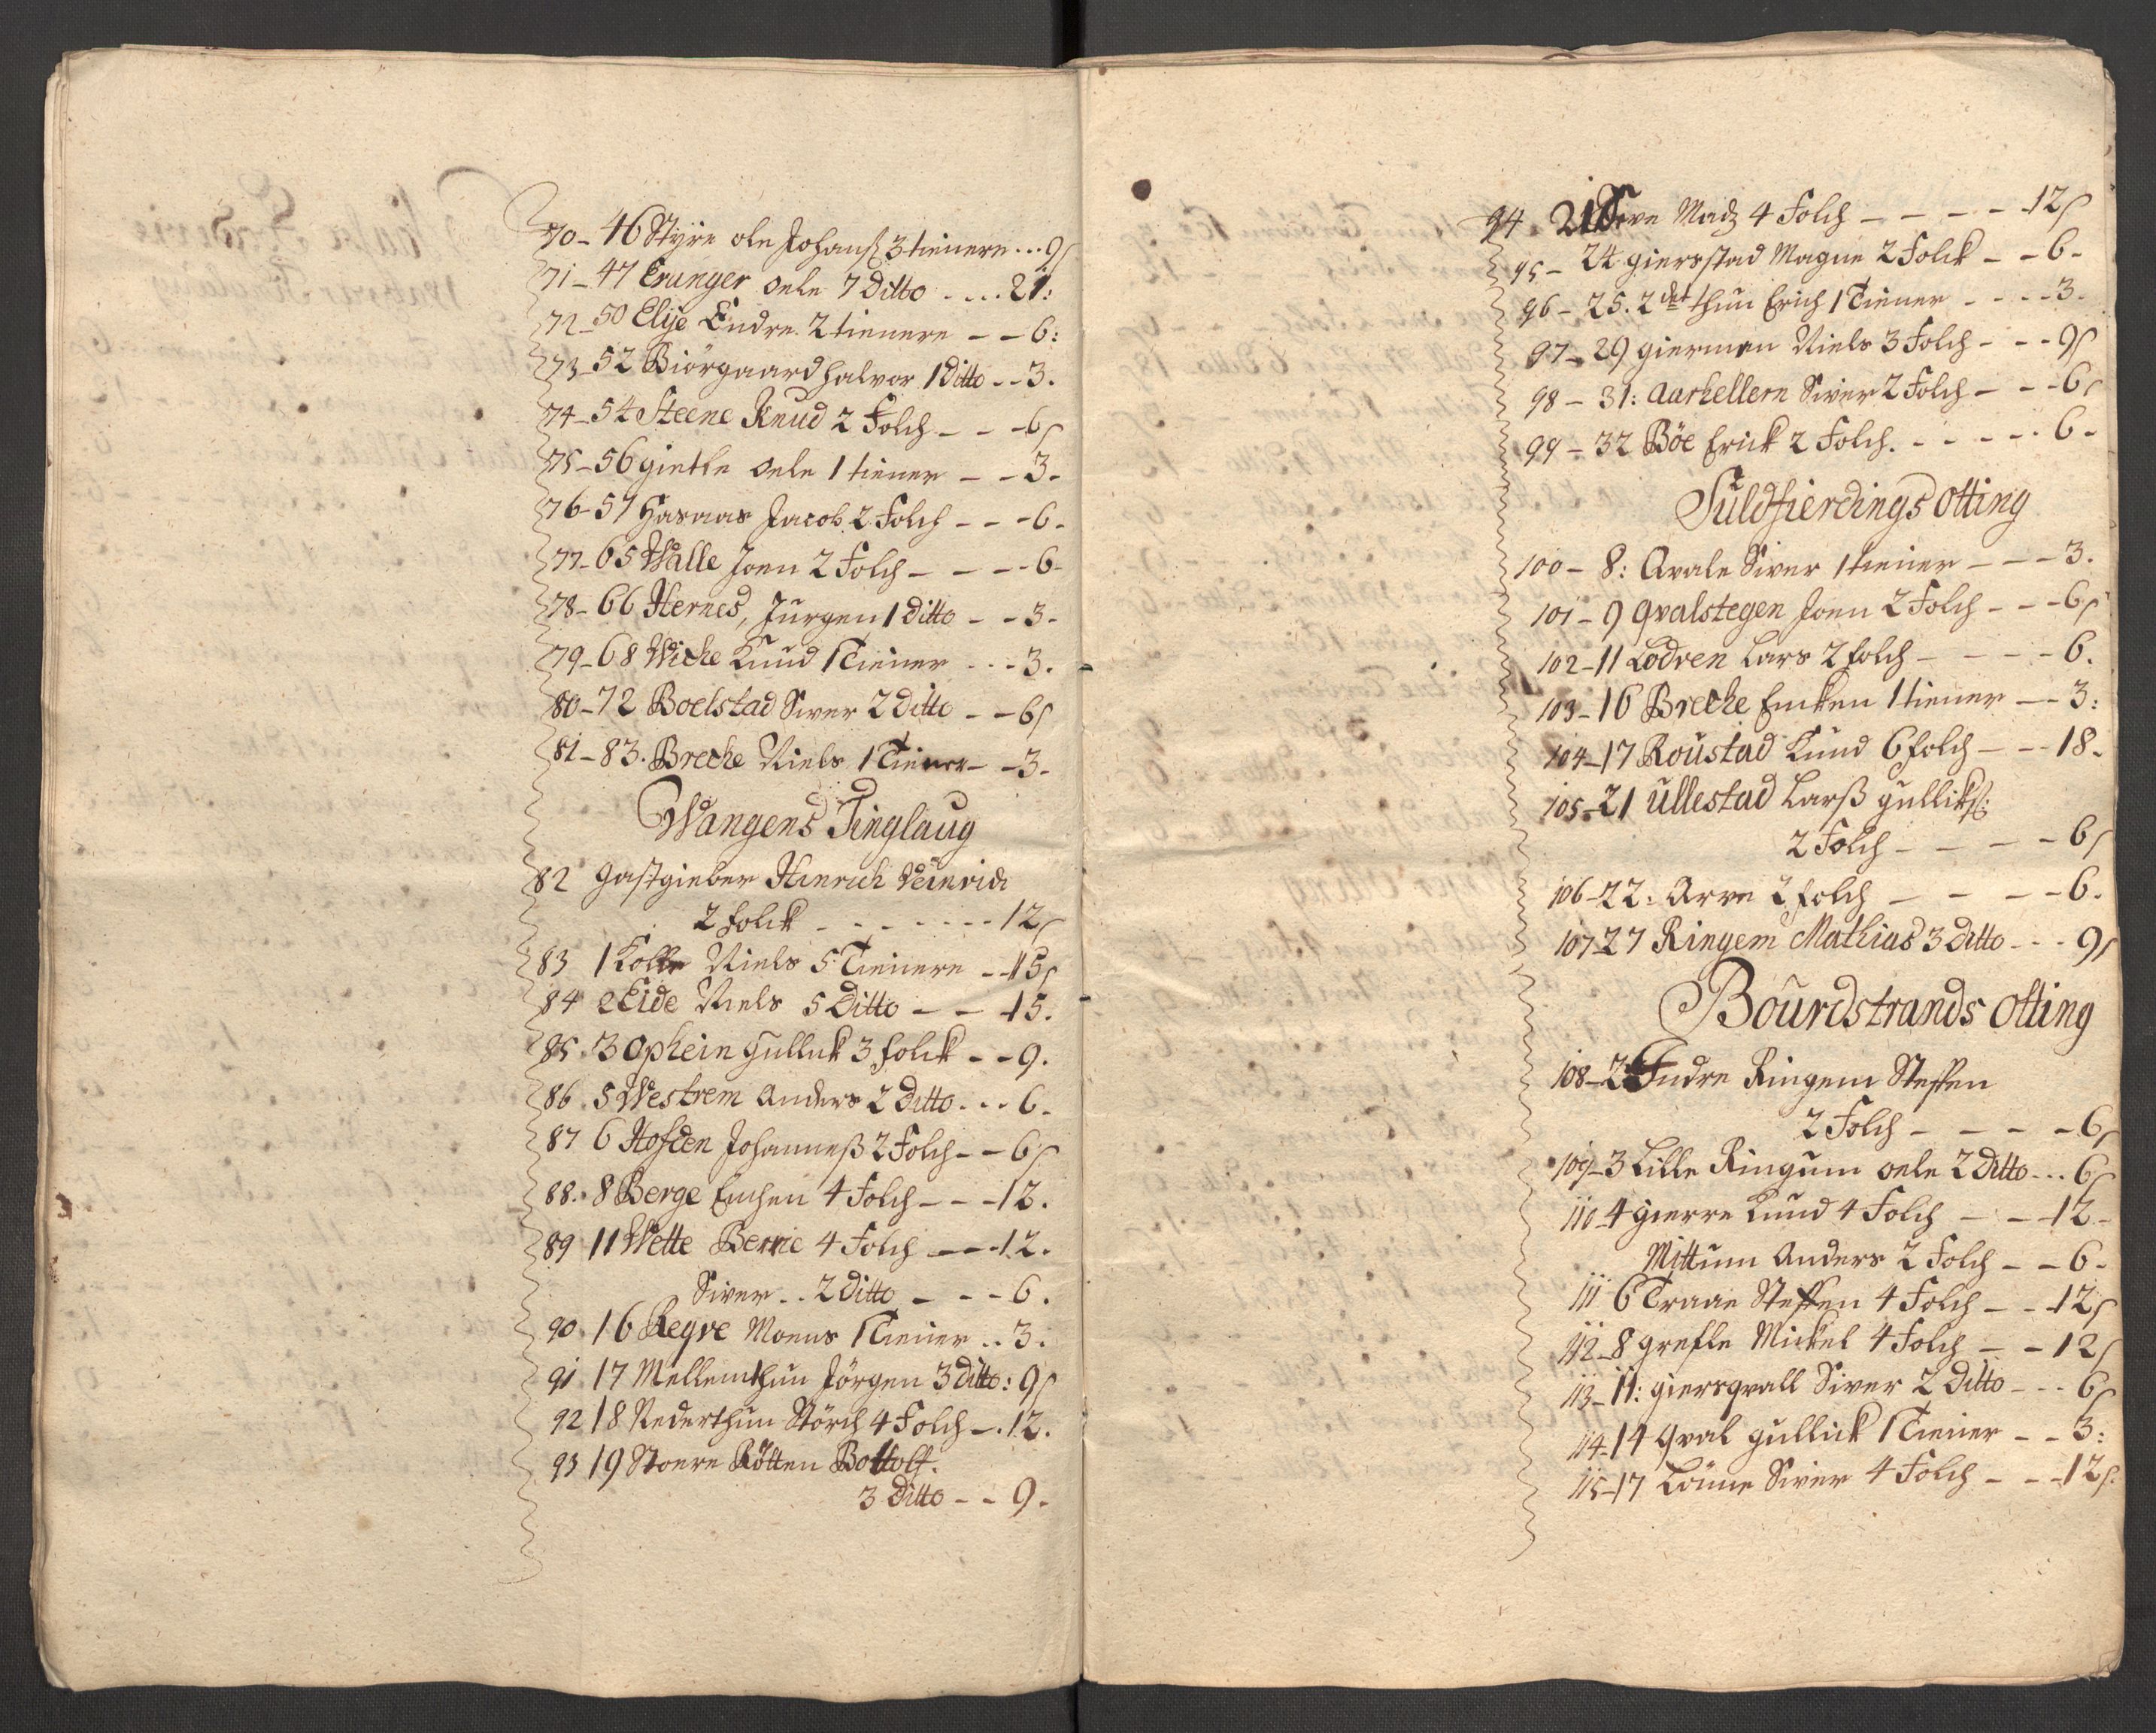 70 - 46 Styre ole Johanß 3 tienere ... 9ß
71 - 47 Erunger oele 7 Ditto .... 21:
72 - 50 Elye Endre 2 tienere - - 6:
73 - 52 Biörgaard Halvor 1 Ditto - - 3.
74 - 54 Steene Knud 2 Folch - - - 6ß
75 - 56 gietle oele 1 tiener - - 3-
76 - 57 Hasaas Jacob 2 Folch - - - 6-
77 - 65 Walle Joen 2 Folch - - - - 6-
78 - 66 Hernes, Jürgen 1 Ditto - - 3-
79 - 68 Wicke Knud 1 Tiener - - - 3.
80 - 72 Boelstad Siver 2 Ditto - - 6ß
81 - 83. Breche Niels 1 Tiener - - 3-
Wangens Tinglaug
82 Gastgieber Hinrich Weinrich
2 folck - - - - - - - 12ß
83 1 Kolle Niels 5 Tienere - - 15ß
84 2 Eide Niels 5 Ditto - - 15.
85. 3 Ophein Gulluk 3 folck - - 9.
86. 5 Westrem Anders 2 Ditto . . . 6-
87 6 Hofden Johanneß 2 Folch - - 6ß
88. 8 Berge Enchen 4 Folch - - - 12.
89 11 Wette Berrie 4 Folch - - - 12.
Siver . . 2 Ditto - - - 6.
90. 16 Reqve Moens 1 Tiener . . 3.
91 17 Mellemthun Jörgen 3 Ditto: 9ß
92 18 Nederthun Störch 4 Folch - . 12.
93 19 Stoere Rötten Bottolf.
3 Ditto - - 9-
94 21 Tere Madz 4 Folch - - - - 12ß
95 - 24 gierstad Magne 2 Folck - - 6-
96 - 25. 2det thun Erich 1 Tiener - - - - 3-
97 - 29 giermen Niels 3 Folch - - - 9ß
98 - 31: Aarhellern Siver 2 Folch - - - 6ß
99 - 32 Böe Erick 2 Folch. - - - - - 6-
Fuldfierdings Otting
100 - 8: Qvale Siver 1 tiener - - - 3.
101 - 9 qvalstegen Joen 2 Folch - - - 6ß
102 - 11 Lödven Lars 2 folch - - - - 6.
103 - 16 Breche Encken 1 tiener - - 3:
104 - 17 Roustad Knud 6 folch - - - 18-
105 - 21 Ullestad Larß gullikß:
2 Folch - - - - 6ß
106 - 22: Arve 2 folch - - - - 6.
107 - 27 Ringem Mathias 3 Ditto - - - 9ß
Bourdstrands Otting
108 - 2 Indre Ringem Steffen
2 Folch - - - - 6ß
109 - 3 Lille Ringum oele 2 Ditto . . . 6ß
110 - 4 gierre Knud 4 Folch - - - 12-
Mittum Anders 2 Folch - - 6-
111 6 Traae Steffen 4 Folch - - - 12ß
112 - 8 grefle Mickel 4 Folch - - 12ß
113 - 11: giersqvall Siver 2 Ditto - - - 6ß
114 - 14 qval gullick 1 Tiener - - 3:
115 - 17 Lönne Siver 4 Folch - - - 12ß